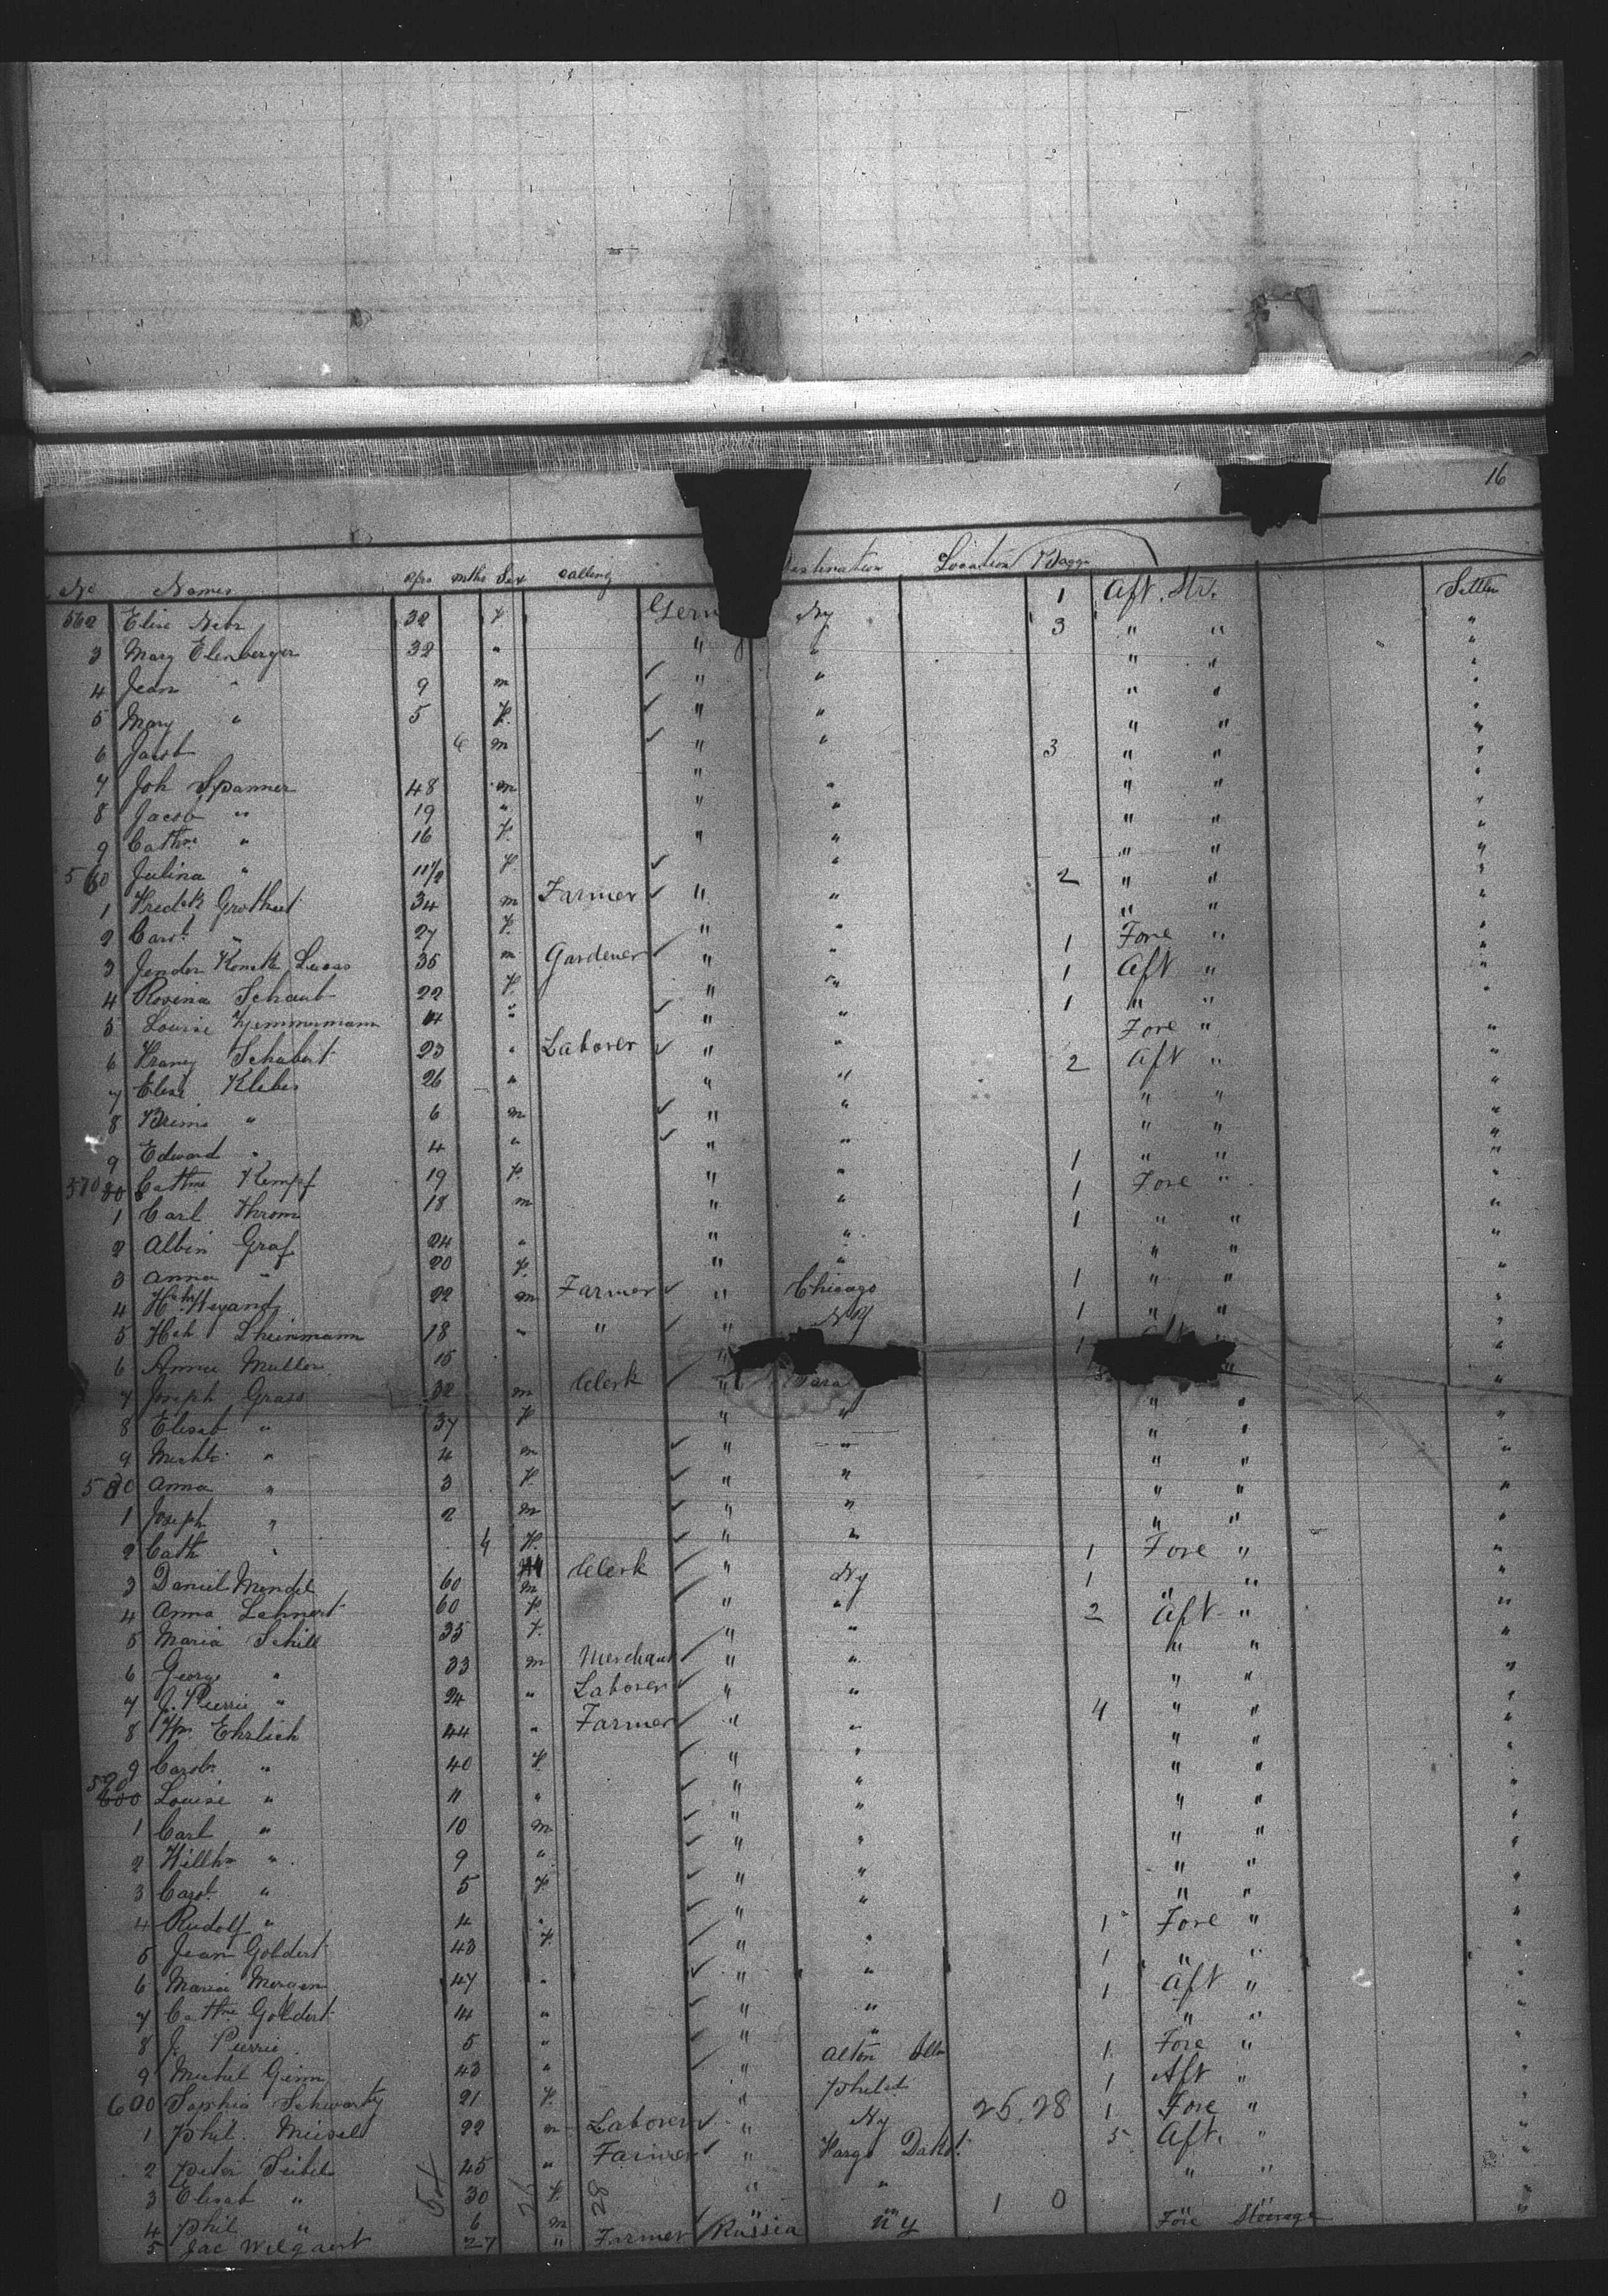 16
No Names mths Sex calling estination Location Bagg
562 Elise 32 f Germ Ny 1 Aft. Str. Settler
3 Mary Elenberger 32 " " " 3 " " "
4 Jean " 9 m ✓ " " " " "
5 Mary " 5 f. ✓ " " " " "
6 Jacob 6 m ✓ " " " " "
7 Joh Spanner 48 m " " 3 " " "
8 Jacob " 19 " " " " " "
9 Cathne " 16 f. " " " " "
560 Julina " 11 1/2 f ✓ " " " "
1 Fredek Grothuet 34 m Farmer ✓ " " 2 " " "
2 Carol. " 27 f. " " " " "
3 Lucas 35 m Gardener ✓ " " 1 Fore " "
4 Rosina Schaub 22 f. " " 1 Aft " "
5 Louise 14 " ✓ " " 1 " " "
6 Franz Schubert 23 " Laborer ✓ " " Fore " "
7 Elise Kleber 26 " " " 2 Aft " "
8 " 6 m ✓ " " " " "
9 Edward " 4 " ✓ " " " " "
570 Cathne Kempf 19 f. " " 1 " " "
1 Carl Throm 18 m " " 1 Fore " "
2 Albin Graf 24 " " " 1 " " "
3 Anna " 20 f. " " " " "
4 Weyand 22 m Farmer ✓ " Chicago 1 " " "
5 Hch 18 " " ✓ " NY 1 " " "
6 Anna Muller 15 " 1 "
7 Joseph Grass 32 m Clerk ✓ " " "
8 Elisab " 37 f " " " " "
9 " 4 m ✓ " " " " "
580 Anna " 3 f. ✓ " " " " "
1 Joseph " 2 m ✓ " " " " "
2 Cath " 4 f. ✓ " " " " "
3 Daniel Mendel 60 m Clerk ✓ " Ny 1 Fore " "
4 Anna Lehnert 60 f. ✓ " " 1 " " "
5 Maria Schill 35 f. " " 2 Aft " "
6 George " 33 m Merchant ✓ " " " " "
7 J. Pierrie " 24 " Laborer ✓ " " " " "
8 Wm Ehrlich 44 " Farmer ✓ " " 4 " " "
9 Carolr " 40 f. ✓ " " " " "
590 Louise " 11 " ✓ " " " " "
1 Carl " 10 m ✓ " " " " "
2 Willhm " 9 " ✓ " " " " "
3 Carol. " 5 f. ✓ " " " " "
4 Rudolf " 4 " ✓ " " " " "
5 Jean Goldert 43 f. ✓ " " 1 Fore " "
6 Maria Mergen 47 " ✓ " " 1 " " "
7 Cathne Goldert 14 " ✓ " " 1 Aft " "
8 J. Pierrie 5 " ✓ " " " " "
9 Michel Ginn 43 " ✓ " Alton Ills 1 Fore " "
600 Sophia Schwartz 21 f. " Philat 1 Aft " "
1 Phil. Meisel 22 m Laborer ✓ " Ny 25.28 1 Fore " "
2 Peter Seibel 45 " Farmer ✓ " Fargo Dakot. 5 Aft. " "
3 Elisab " 30 f. " " " " "
4 Phil " 6 m " " 1 0
5 Jac Welgaert 27 " Farmer Russia NY Fore Steerage "
54 26 28